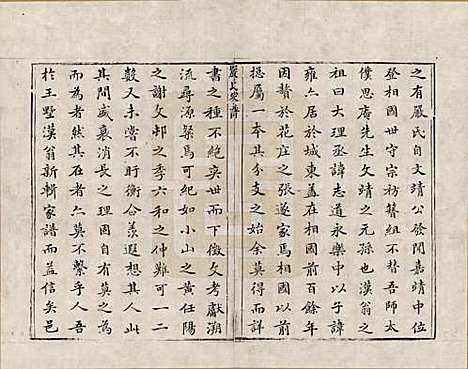 之有嚴氏自文靖公發聞嘉靖中位
登相國世守宗祊簪組不替吾師太
僕思庵先生文靖之元孫也漢翁之
祖曰大理丞諱志道永樂中以子諱
雍亦居於城東蓋在相國前百餘年
因贅於花庄之張遂家焉相國以前
總屬一本其分支之始余莫得而詳
嚴氏家譜
書之種不絕奕世而下徵文考獻溯
流尋源槩焉可紀如小山之黃任陽
之謝文邨之李六和之仲難可一二
數又未嘗不盱衡合羨遐想於此焉
其間盛衰消長之理固自有莫之為
而為者在亦莫不繫乎人吾
於王墅漢翁新輯家譜而益信矣邑